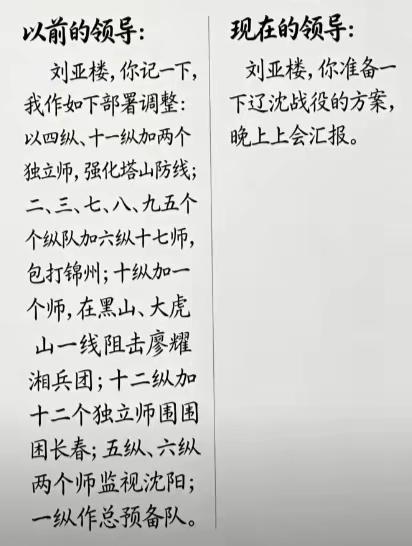 以前的领导：
刘亚楼，你记一下，
我作如下部署调整：
以四纵、十一纵加两个
独立师，强化塔山防线；
二、三、七、八、九五个
个纵队加六纵十七师，
包打锦州；十纵加一
个师，在黑山、大虎
山一线阻击廖耀
湘兵团；十二纵加
十二个独立师围围
困长春；五纵、六纵
两个师监视沈阳；
一纵作总预备队。
现在的领导：
刘亚楼，你准备一
下辽沈战役的方案，
晚上上会汇报。